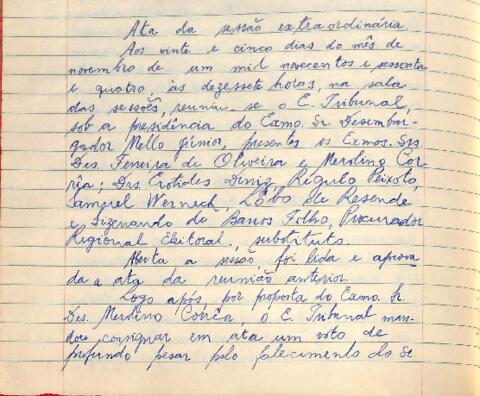 Ata da sessão extraordinária
Aos vinte e cinco dias do mês de
novembro de um mil novecentos e sessenta
e quatro, às dezessete horas, na sala
das sessões, reuniu-se o E. Tribunal,
sob a presidência do Exmo. Sr. Desembar-
gador Mello Júnior, presentes os Exmos. Srs.
Des. Ferreira de Oliveira e Merolino Cor-
rêa; Drs. Erotides Diniz, Régulo Peixoto,
Samuel Werneck, Lôbo de Resende
e Sizenando de Barros Filho, Procurador
Regional Eleitoral, substituto.
Aberta a sessão foi lida e aprova
da a ata da reunião anterior.
Logo após, por proposta do Exmo. Sr.
Des. Merolino Corrêa, o E. Tribunal man-
dou consignar em ata um voto de
profundo pesar pelo falecimento do Se